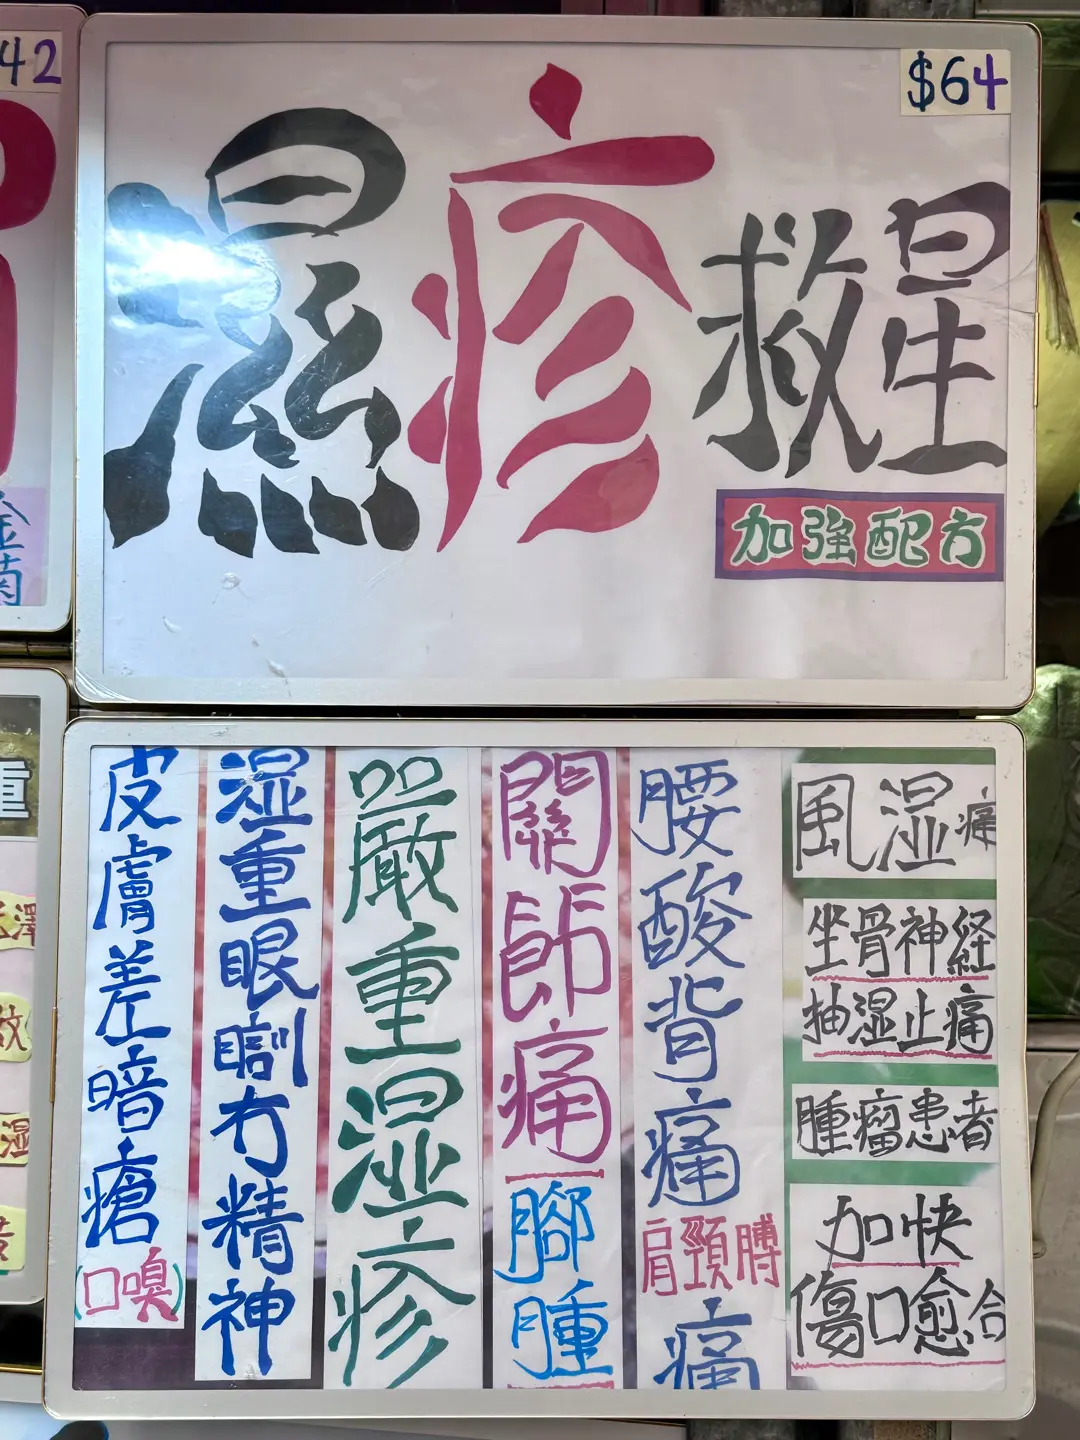 42
$64
濕疹救星
加強配方
金菊
重
風湿痛
坐骨神経
抽湿止痛
腫瘤患者
加快
傷口愈合
腰酸背痛
肩頸膊
痛
關節痛
腳腫
嚴重湿疹
湿重眼瞓冇精神
皮膚差暗瘡
(口嗅)